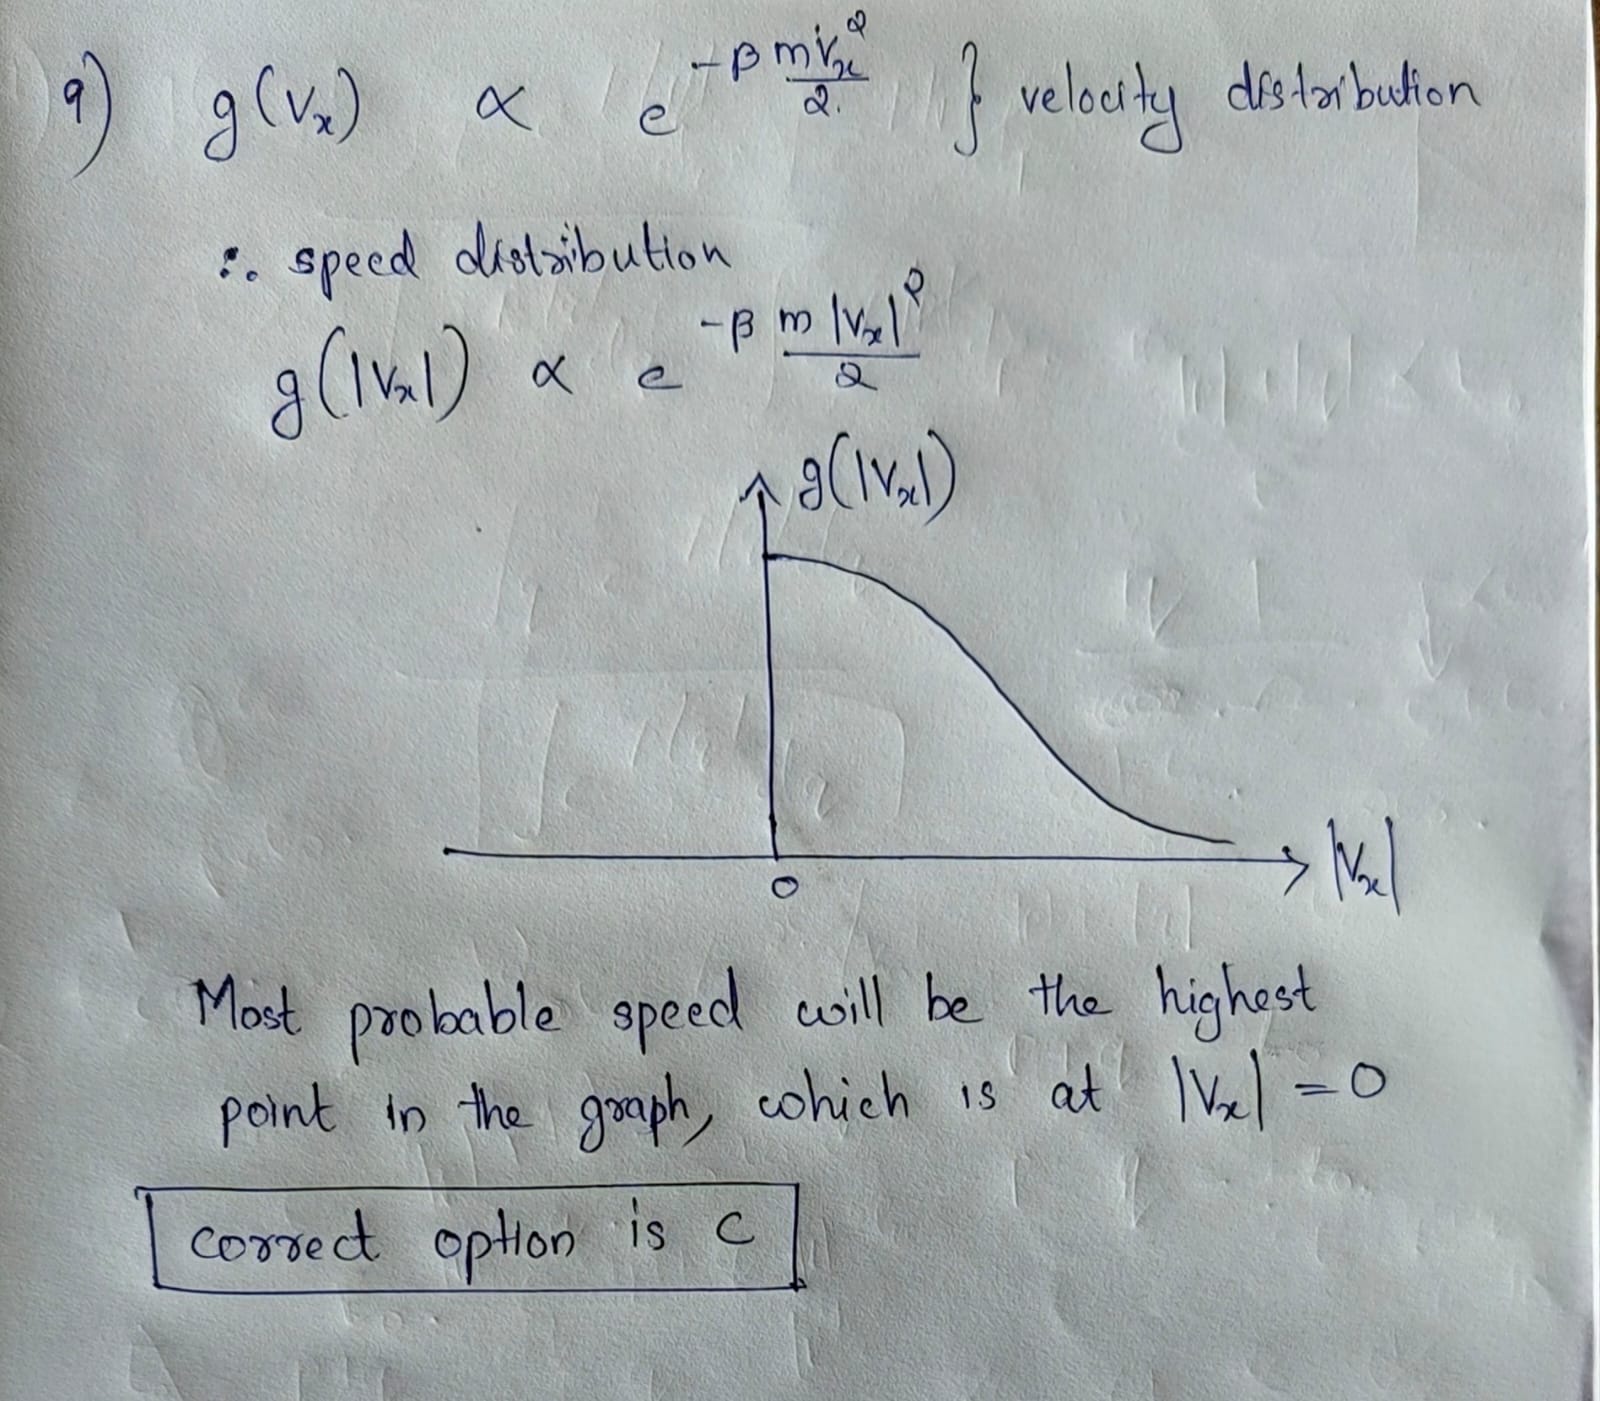 9) g(Vx) ∝ e^(-β mVx²/2) } velocity distribution
∴ speed distribution
g(|Vx|) ∝ e^(-β m|Vx|²/2)
g(|Vx|)
|Vx|
0
Most probable speed will be the highest
point in the graph, which is at |Vx| = 0
correct option is C